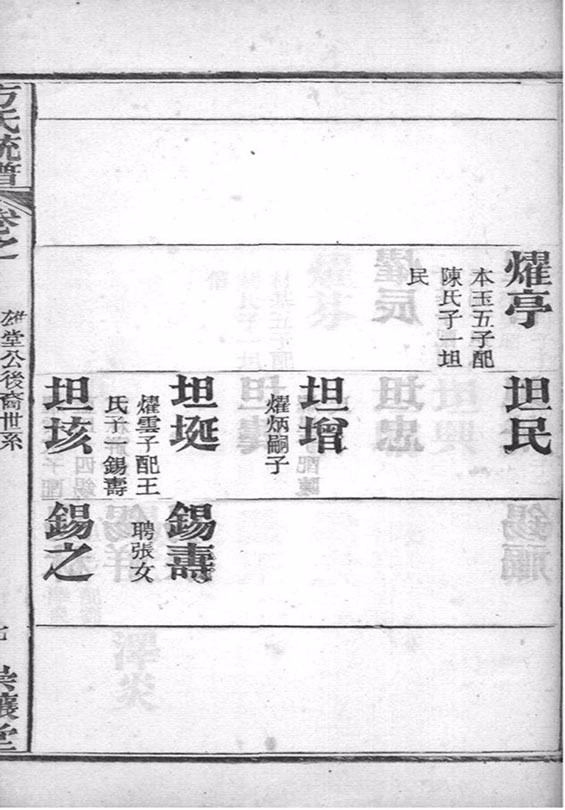 燿亭
本玉五子配
陳氏子一坦
民
坦民
坦增
燿炳嗣子
坦埏
燿雲子配王
氏子一錫壽
錫壽
聘張女
坦垓
錫之
方氏統譜
卷之
雄堂公後裔世系